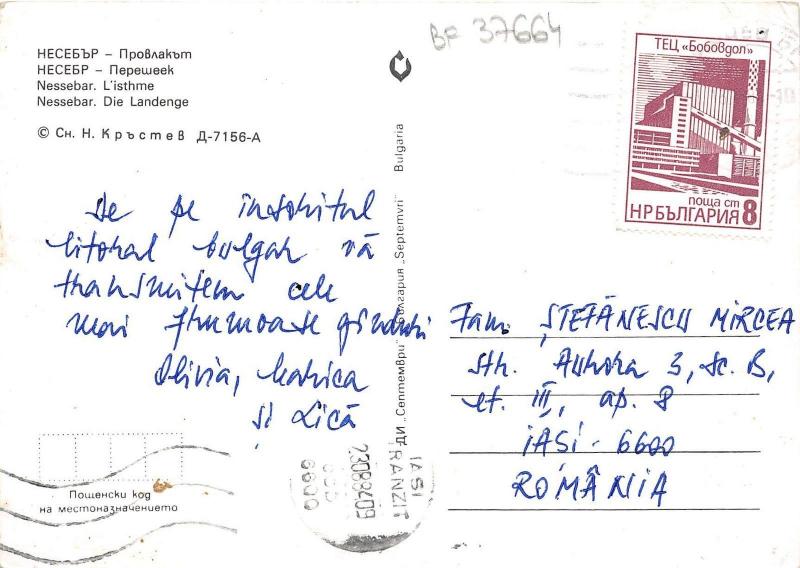 BF 37664
НЕСЕБЪР – Провлакът
НЕСЕБР – Перешеек
Nessebar. L'isthme
Nessebar. Die Landenge
© Сн. Н. Кръстев Д-7156-А
ТЕЦ „Бобовдол"
поща ст
НР БЪЛГАРИЯ 8
De pe însoritul
litoral bulgar vă
transmitem cele
mai frumoase gînduri
Olivia, Marica
și Lică
ДИ „Септември" България „Septemvri" Bulgaria
Fam. ȘTEFĂNESCU MIRCEA
str. Aurora 3, sc. B,
et. III, ap. 8
IAȘI - 6600
ROMÂNIA
IASI
TRANZIT
23088409
6600
Пощенски код
на местоназначението